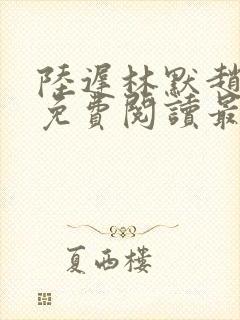 陸遲林默趙
免費閱讀最
夏西樓